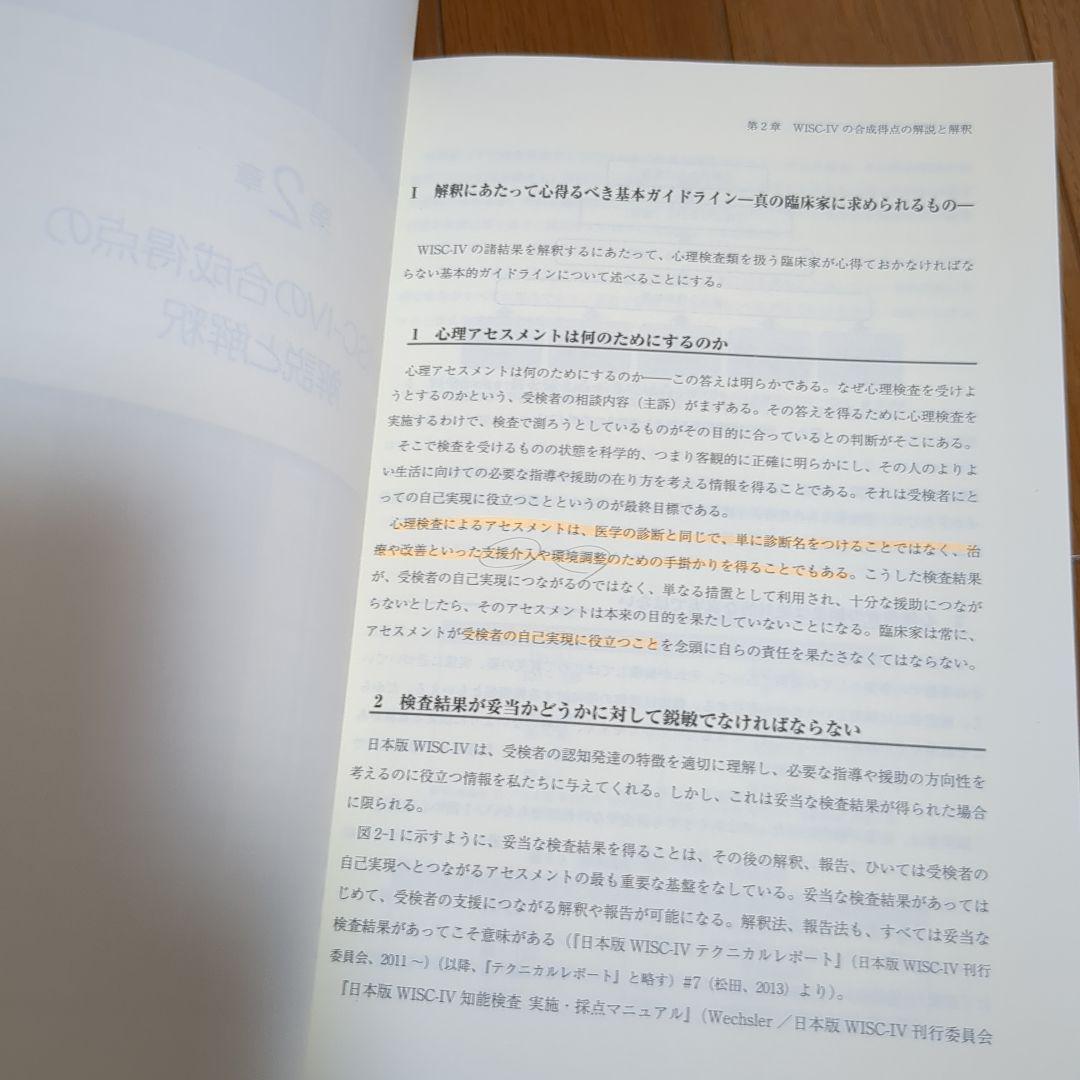 第2章 WISC-IVの合成得点の解説と解釈
I 解釈にあたって心得るべき基本ガイドライン―真の臨床家に求められるもの―
WISC-IVの諸結果を解釈するにあたって、心理検査類を扱う臨床家が心得ておかなければな
らない基本的ガイドラインについて述べることにする。
1 心理アセスメントは何のためにするのか
心理アセスメントは何のためにするのか――この答えは明らかである。なぜ心理検査を受けよ
うとするのかという、受検者の相談内容（主訴）がまずある。その答えを得るために心理検査を
実施するわけで、検査で測ろうとしているものがその目的に合っているとの判断がそこにある。
そこで検査を受けるものの状態を科学的、つまり客観的に正確に明らかにし、その人のよりよ
い生活に向けての必要な指導や援助の在り方を考える情報を得ることである。それは受検者にと
っての自己実現に役立つことというのが最終目標である。
心理検査によるアセスメントは、医学の診断と同じで、単に診断名をつけることではなく、治
療や改善といった支援介入や環境調整のための手掛かりを得ることでもある。こうした検査結果
が、受検者の自己実現につながるのではなく、単なる措置として利用され、十分な援助につなが
らないとしたら、そのアセスメントは本来の目的を果たしていないことになる。臨床家は常に、
アセスメントが受検者の自己実現に役立つことを念頭に自らの責任を果たさなくてはならない。
2 検査結果が妥当かどうかに対して鋭敏でなければならない
日本版WISC-IVは、受検者の認知発達の特徴を適切に理解し、必要な指導や援助の方向性を
考えるのに役立つ情報を私たちに与えてくれる。しかし、これは妥当な検査結果が得られた場合
に限られる。
図2-1に示すように、妥当な検査結果を得ることは、その後の解釈、報告、ひいては受検者の
自己実現へとつながるアセスメントの最も重要な基盤をなしている。妥当な検査結果があっては
じめて、受検者の支援につながる解釈や報告が可能になる。解釈法、報告法も、すべては妥当な
検査結果があってこそ意味がある（『日本版WISC-IVテクニカルレポート』（日本版WISC-IV刊行
委員会、2011～）（以降、『テクニカルレポート』と略す）#7（松田、2013）より）。
『日本版WISC-IV知能検査 実施・採点マニュアル』（Wechsler／日本版WISC-IV刊行委員会